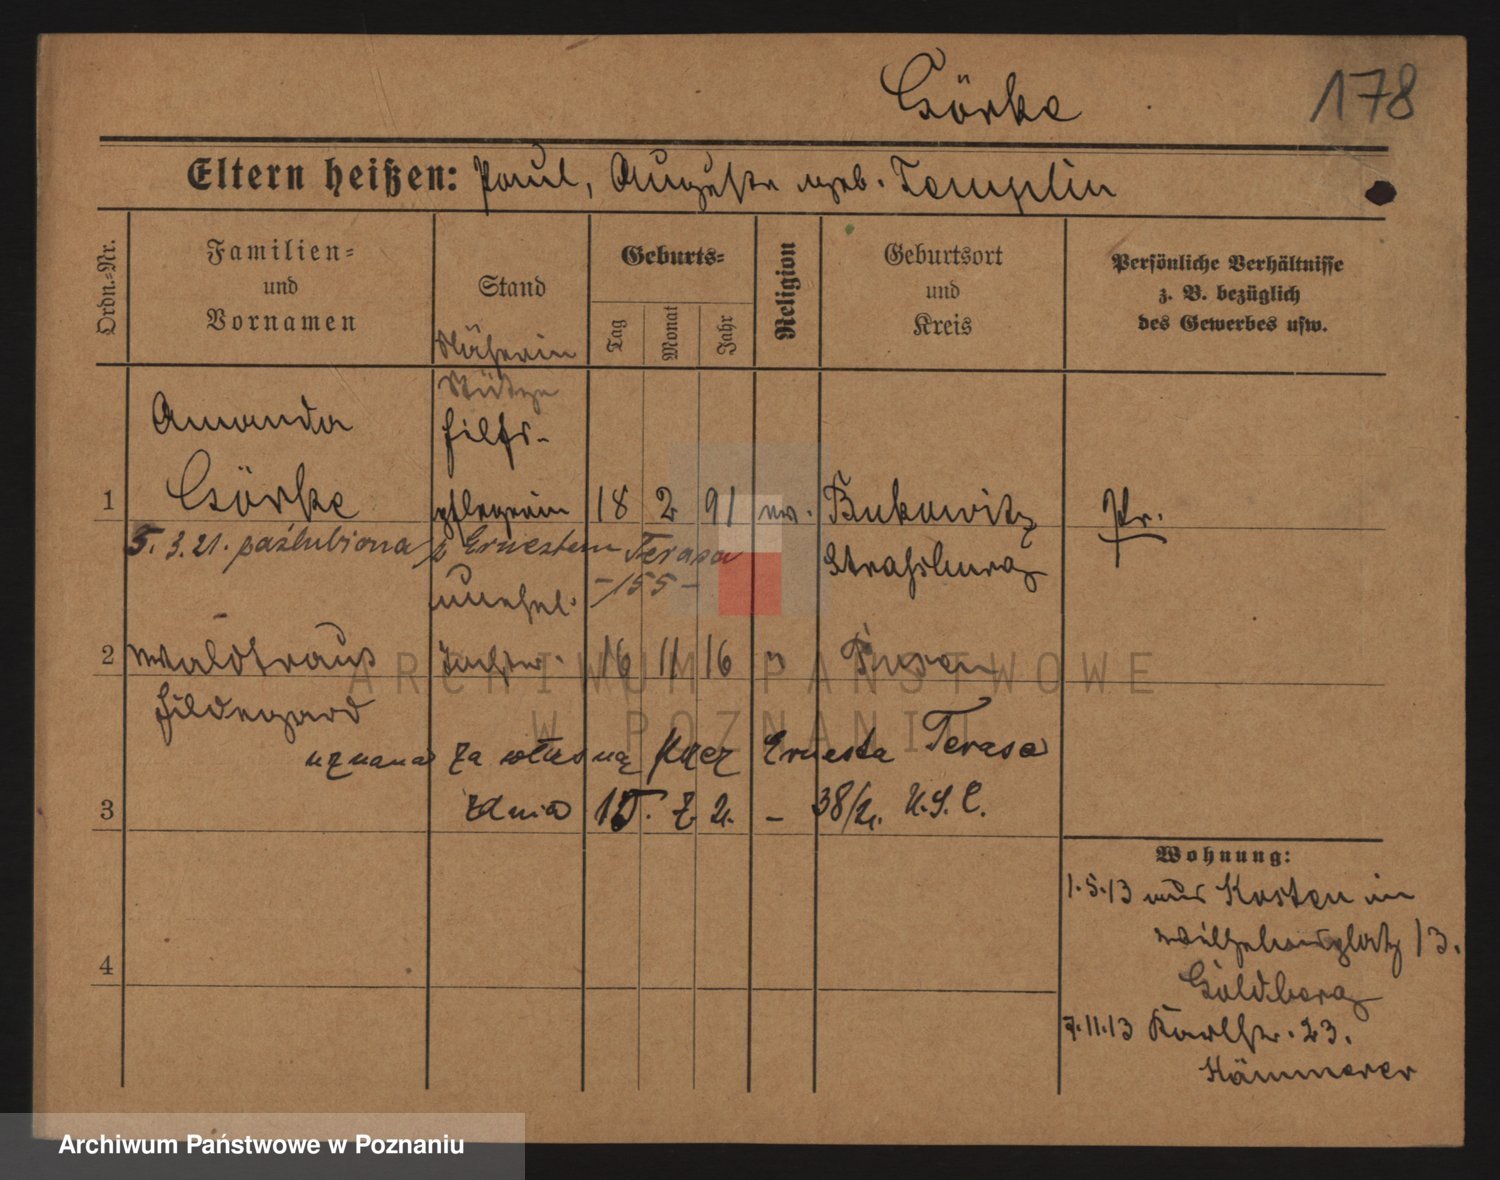 Görke 178
Eltern heißen: Paul, Auguste geb. Templin
Ordn.-Nr.
Familien-
und
Vornamen
Stand
Geburts-
Tag
Monat
Jahr
Religion
Geburtsort
und
Kreis
Persönliche Verhältnisse
z. B. bezüglich
des Gewerbes usw.
Näherin
Stütze
Amanda Hilfs-
1 Görke pflegerin 18 2 91 ev. Bukowitz Pr.
5. 3. 21. poślubiona z Ernestem Terasa Strasburg
-155-
unehel.
2 Waldtraud Tochter 16 11 16 " Posen
Hildegard
uznana za własną przez Ernesta Terasa
3 z dnia 15. 2 21. - 38/21. U.S.C.
4
Wohnung:
1.5.13 aus Kosten in
Wilhelmsplatz 13.
Goldberg
7.11.13 Karlstr. 23.
Kämmerer
ARCHIWUM PAŃSTWOWE
W POZNANIU
Archiwum Państwowe w Poznaniu